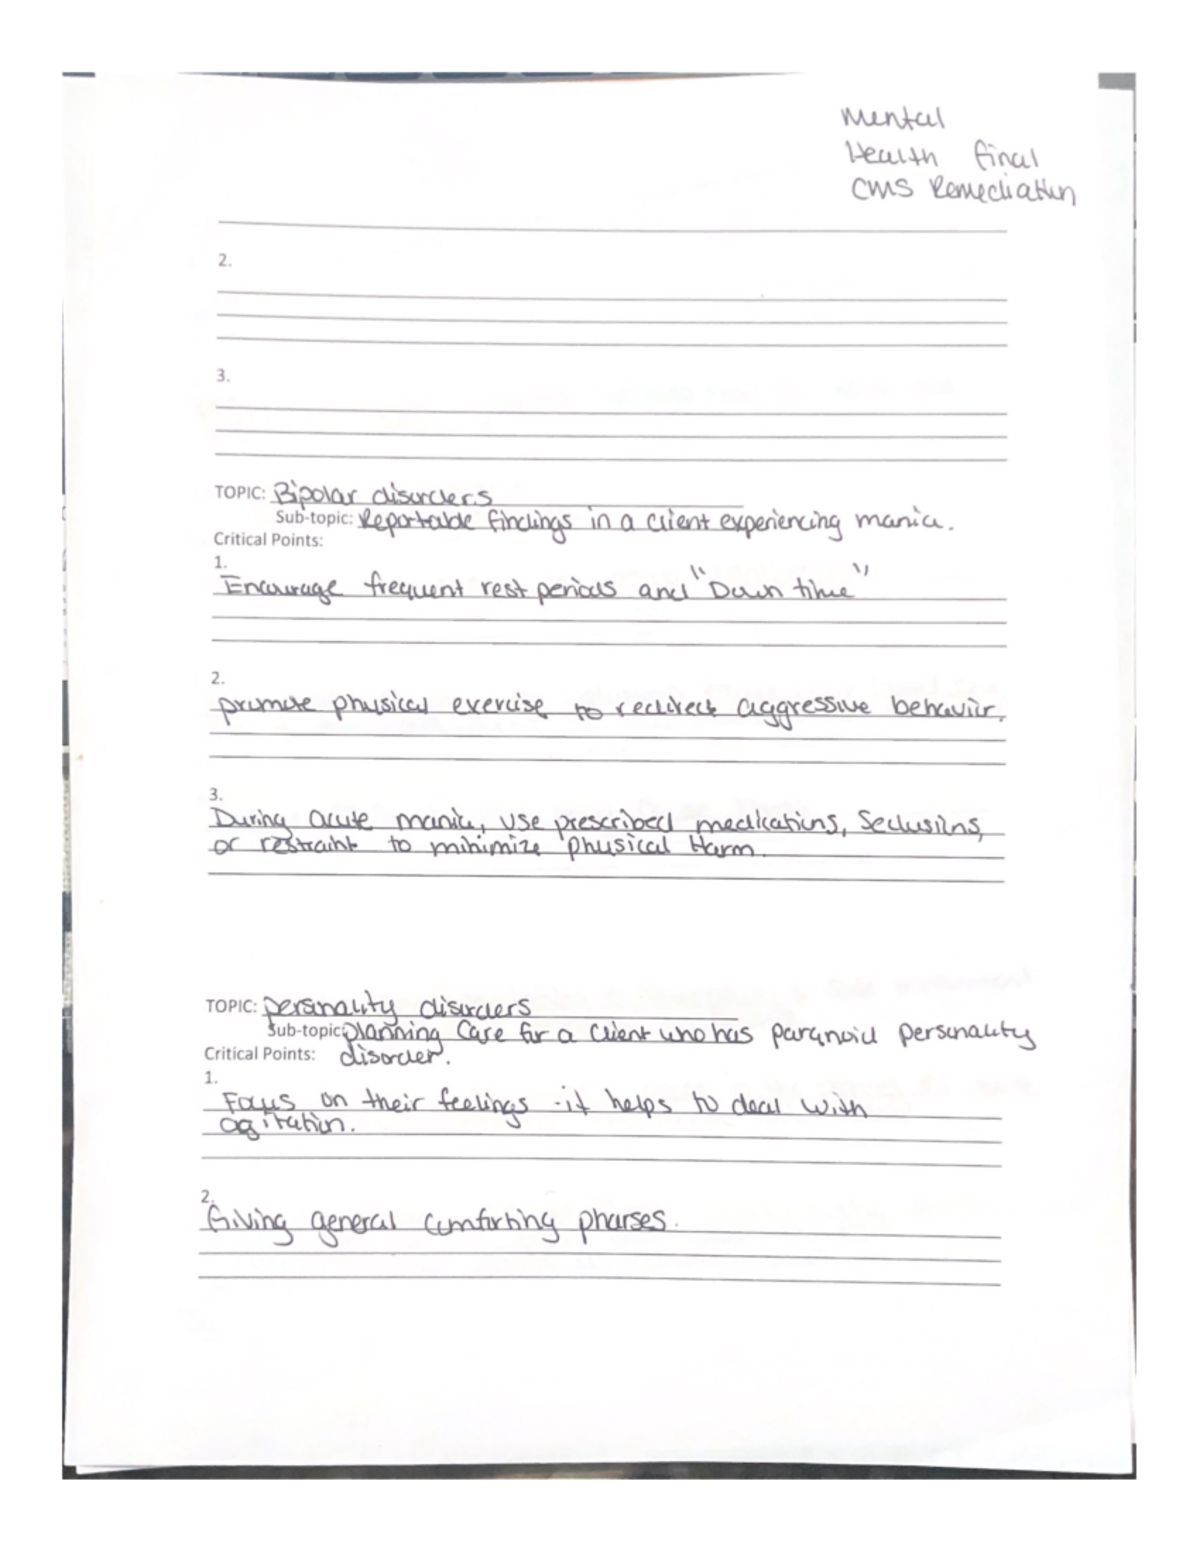 Mental
Health final
CMS Remediation
2.
3.
TOPIC: Bipolar disorders
Sub-topic: Reportable findings in a client experiencing mania.
Critical Points:
1.
Encourage frequent rest periods and "Down time"
2.
promote physical exercise to redirect aggressive behavior.
3.
During acute mania, use prescribed medications, Seclusions,
or restraint to minimize physical Harm.
TOPIC: personality disorders
Sub-topic: planning Care for a client who has paranoid personality
Critical Points: disorder.
1.
Focus on their feelings - it helps to deal with
agitation.
2.
Giving general comforting pharses.